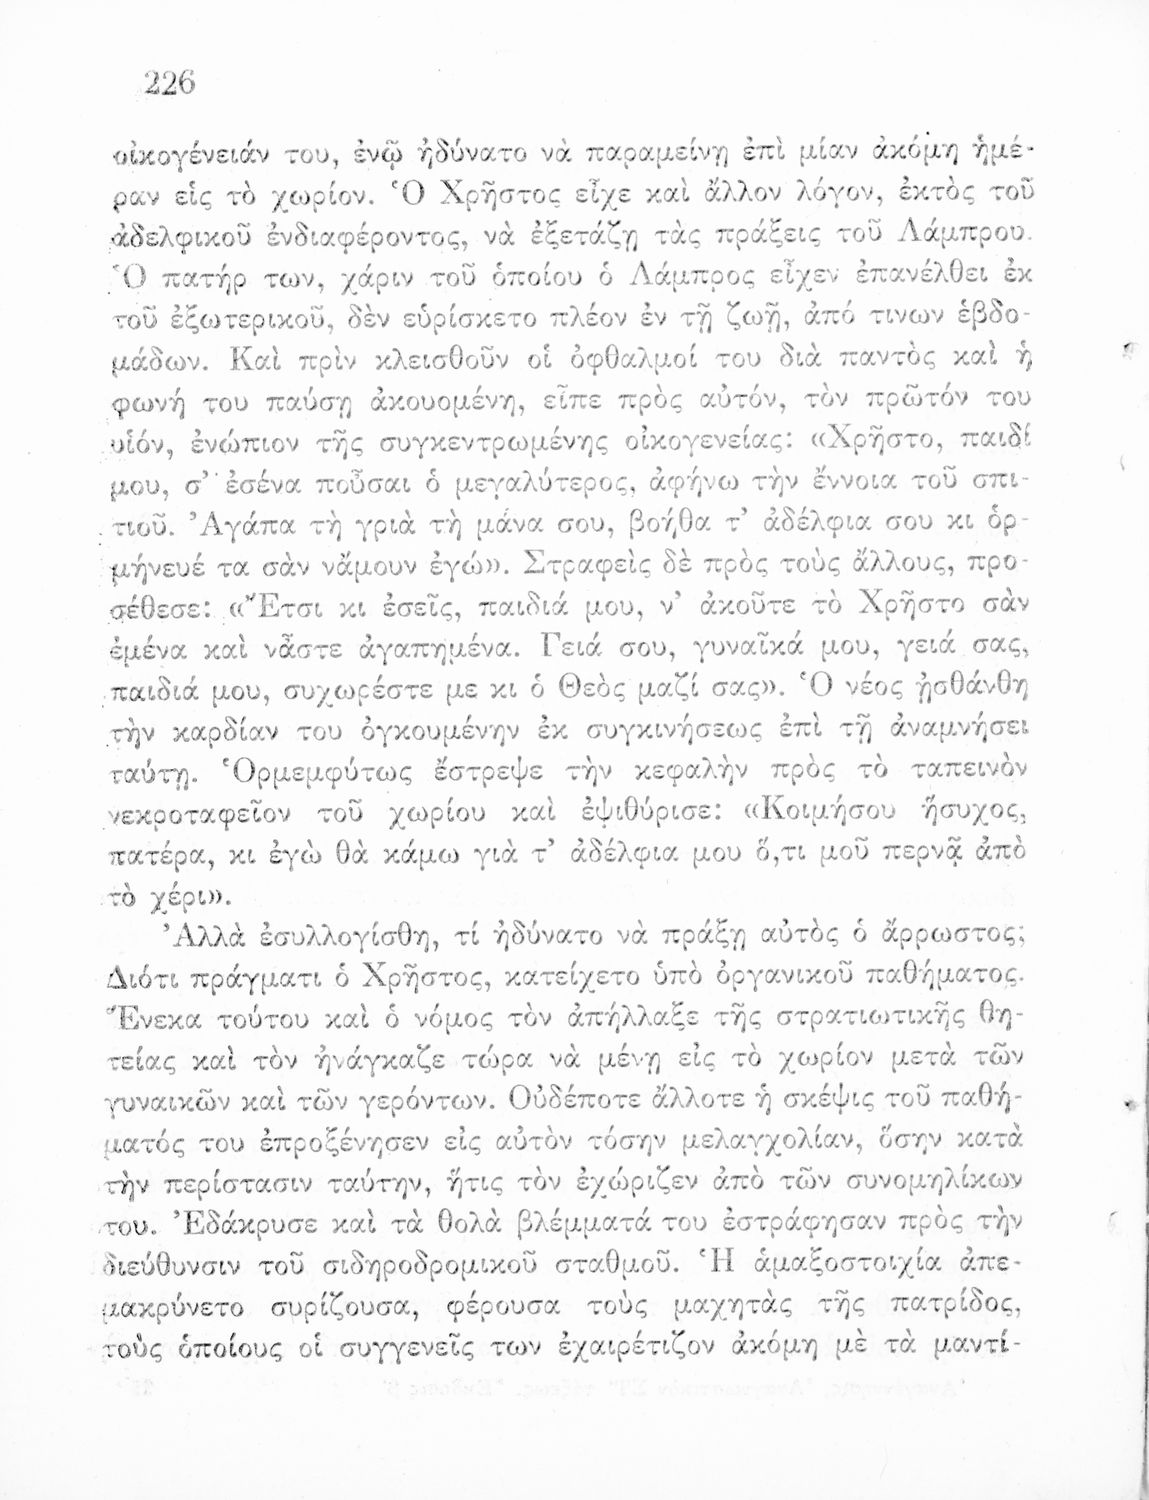 226
οἰκογένειάν του, ἐνῷ ἠδύνατο νὰ παραμείνῃ ἐπὶ μίαν ἀκόμη ἡμέ-
ραν εἰς τὸ χωρίον. Ὁ Χρῆστος εἶχε καὶ ἄλλον λόγον, ἐκτὸς τοῦ
ἀδελφικοῦ ἐνδιαφέροντος, νὰ ἐξετάζῃ τὰς πράξεις τοῦ Λάμπρου.
Ὁ πατήρ των, χάριν τοῦ ὁποίου ὁ Λάμπρος εἶχεν ἐπανέλθει ἐκ
τοῦ ἐξωτερικοῦ, δὲν εὑρίσκετο πλέον ἐν τῇ ζωῇ, ἀπό τινων ἑβδο-
μάδων. Καὶ πρὶν κλεισθοῦν οἱ ὀφθαλμοί του διὰ παντὸς καὶ ἡ
φωνή του παύσῃ ἀκουομένη, εἶπε πρὸς αὐτόν, τὸν πρῶτόν του
υἱόν, ἐνώπιον τῆς συγκεντρωμένης οἰκογενείας: «Χρῆστο, παιδί
μου, σ’ ἐσένα ποὖσαι ὁ μεγαλύτερος, ἀφήνω τὴν ἔννοια τοῦ σπι-
τιοῦ. Ἀγάπα τὴ γριὰ τὴ μάνα σου, βοήθα τ’ ἀδέλφια σου κι ὁρ-
μήνευέ τα σὰν νἄμουν ἐγώ». Στραφεὶς δὲ πρὸς τοὺς ἄλλους, προ-
σέθεσε: «Ἔτσι κι ἐσεῖς, παιδιά μου, ν’ ἀκοῦτε τὸ Χρῆστο σὰν
ἐμένα καὶ νἆστε ἀγαπημένα. Γειά σου, γυναῖκά μου, γειά σας,
παιδιά μου, συχωρέστε με κι ὁ Θεὸς μαζί σας». Ὁ νέος ᾐσθάνθη
τὴν καρδίαν του ὀγκουμένην ἐκ συγκινήσεως ἐπὶ τῇ ἀναμνήσει
ταύτῃ. Ὁρμεμφύτως ἔστρεψε τὴν κεφαλὴν πρὸς τὸ ταπεινὸν
νεκροταφεῖον τοῦ χωρίου καὶ ἐψιθύρισε: «Κοιμήσου ἥσυχος,
πατέρα, κι ἐγὼ θὰ κάμω γιὰ τ’ ἀδέλφια μου ὅ,τι μοῦ περνᾷ ἀπὸ
τὸ χέρι».
Ἀλλὰ ἐσυλλογίσθη, τί ἠδύνατο νὰ πράξῃ αὐτὸς ὁ ἄρρωστος;
Διότι πράγματι ὁ Χρῆστος, κατείχετο ὑπὸ ὀργανικοῦ παθήματος.
Ἕνεκα τούτου καὶ ὁ νόμος τὸν ἀπήλλαξε τῆς στρατιωτικῆς θη-
τείας καὶ τὸν ἠνάγκαζε τώρα νὰ μένῃ εἰς τὸ χωρίον μετὰ τῶν
γυναικῶν καὶ τῶν γερόντων. Οὐδέποτε ἄλλοτε ἡ σκέψις τοῦ παθή-
ματός του ἐπροξένησεν εἰς αὐτὸν τόσην μελαγχολίαν, ὅσην κατὰ
τὴν περίστασιν ταύτην, ἥτις τὸν ἐχώριζεν ἀπὸ τῶν συνομηλίκων
του. Ἐδάκρυσε καὶ τὰ θολὰ βλέμματά του ἐστράφησαν πρὸς τὴν
διεύθυνσιν τοῦ σιδηροδρομικοῦ σταθμοῦ. Ἡ ἁμαξοστοιχία ἀπε-
μακρύνετο συρίζουσα, φέρουσα τοὺς μαχητὰς τῆς πατρίδος,
τοὺς ὁποίους οἱ συγγενεῖς των ἐχαιρέτιζον ἀκόμη μὲ τὰ μαντί-